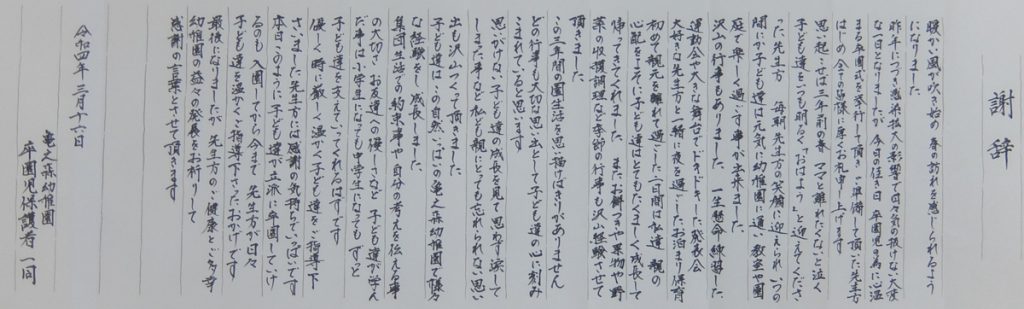 謝辞
暖かい風が吹き始め 春の訪れを感じられるよう
になりました
昨年につづき感染拡大の影響で日々気の抜けない大変
な一日となりましたが 今日の佳き日 卒園児の為に心温
まる卒園式を挙行して頂き ご準備して頂いた先生方
はじめ 全ての皆様に厚くお礼申し上げます
思い起こせば三年前の春 ママと離れたくないと泣く
子ども達をいつも明るく「おはよう」と迎えてくださ
った先生方 毎朝先生方の笑顔に迎えられ いつの
間にか子ども達は元気に幼稚園に通い 教室や園
庭で楽しく過ごす事が出来ました
沢山の行事もありました 一生懸命練習した
運動会や大きな舞台でドキドキした発表会
大好きな先生方と一緒に夜を過ごしたお泊まり保育
初めて親元を離れ過ごした二日間は私達 親の
心配をよそに子ども達はとてもたくましく成長して
帰ってきてくれました またお餅つきや果物や野
菜の収穫 調理など季節の行事も沢山経験させて
頂きました
この三年間の園生活を思い描けばきりがありません
どの行事も大切な思い出として子ども達の心に刻み
こまれていると思います
思いがけない子ども達の成長を見て思わず涙して
しまった事など 私ども親にとっても忘れられない思い
出も沢山つくって頂きました
子ども達は この自然いっぱいの亀之森幼稚園で様々
な経験をし 成長しました
集団生活での約束事や 自分の考えを伝える事
の大切さ お友達への優しさなど 子ども達が学ん
だ事は 小学生になっても中学生になっても ずっと
子ども達を支えていってくれるはずです
優しく時に厳しく 温かく子ども達をご指導下
さいました先生方には感謝の気持ちでいっぱいです
本日このように 子ども達が立派に卒園していけ
るのも 入園してから今まで 先生方が日々
子ども達を温かくご指導下さったおかげです
最後になりましたが 先生方のご健康とご多幸
幼稚園の益々の発展をお祈りして
感謝の言葉とさせて頂きます
令和四年 三月十六日
亀之森幼稚園
卒園児保護者一同